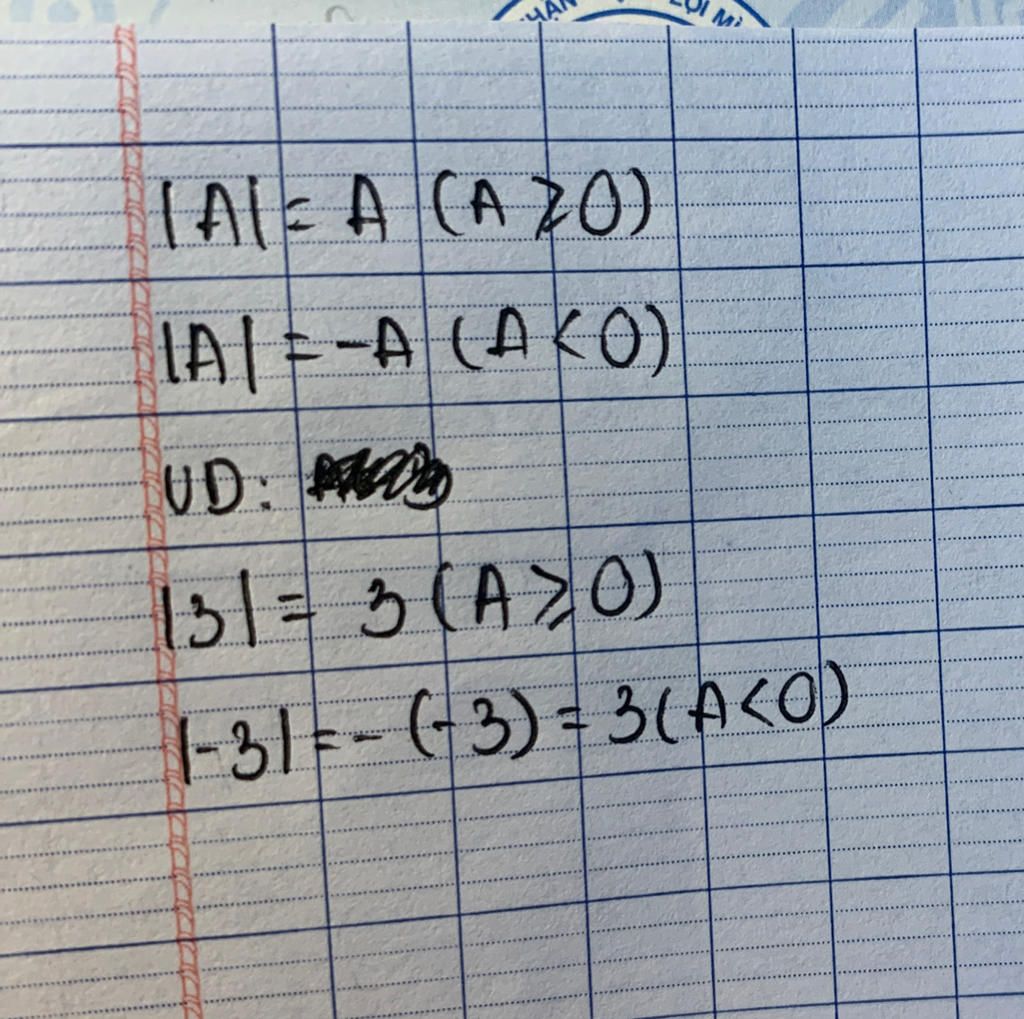 HÂN LỢI MÌ
|A| = A (A ≥ 0)
|A| = -A (A < 0)
VD:
|3| = 3 (A ≥ 0)
|-3| = - (-3) = 3 (A < 0)